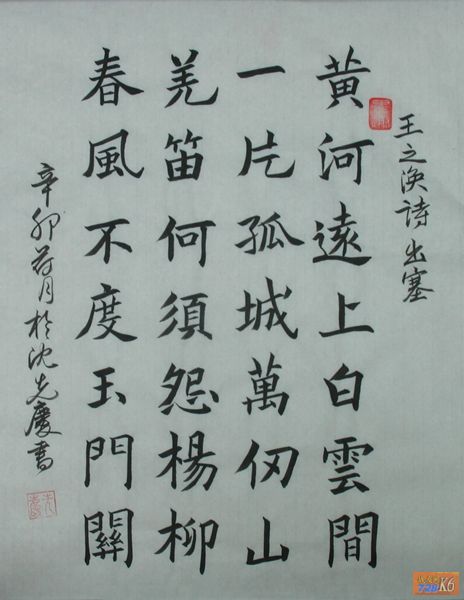 王之渙詩出塞
黄河遠上白雲間
一片孤城萬仞山
羌笛何須怨楊柳
春風不度玉門關
辛卯荷月於沈先慶書
K6